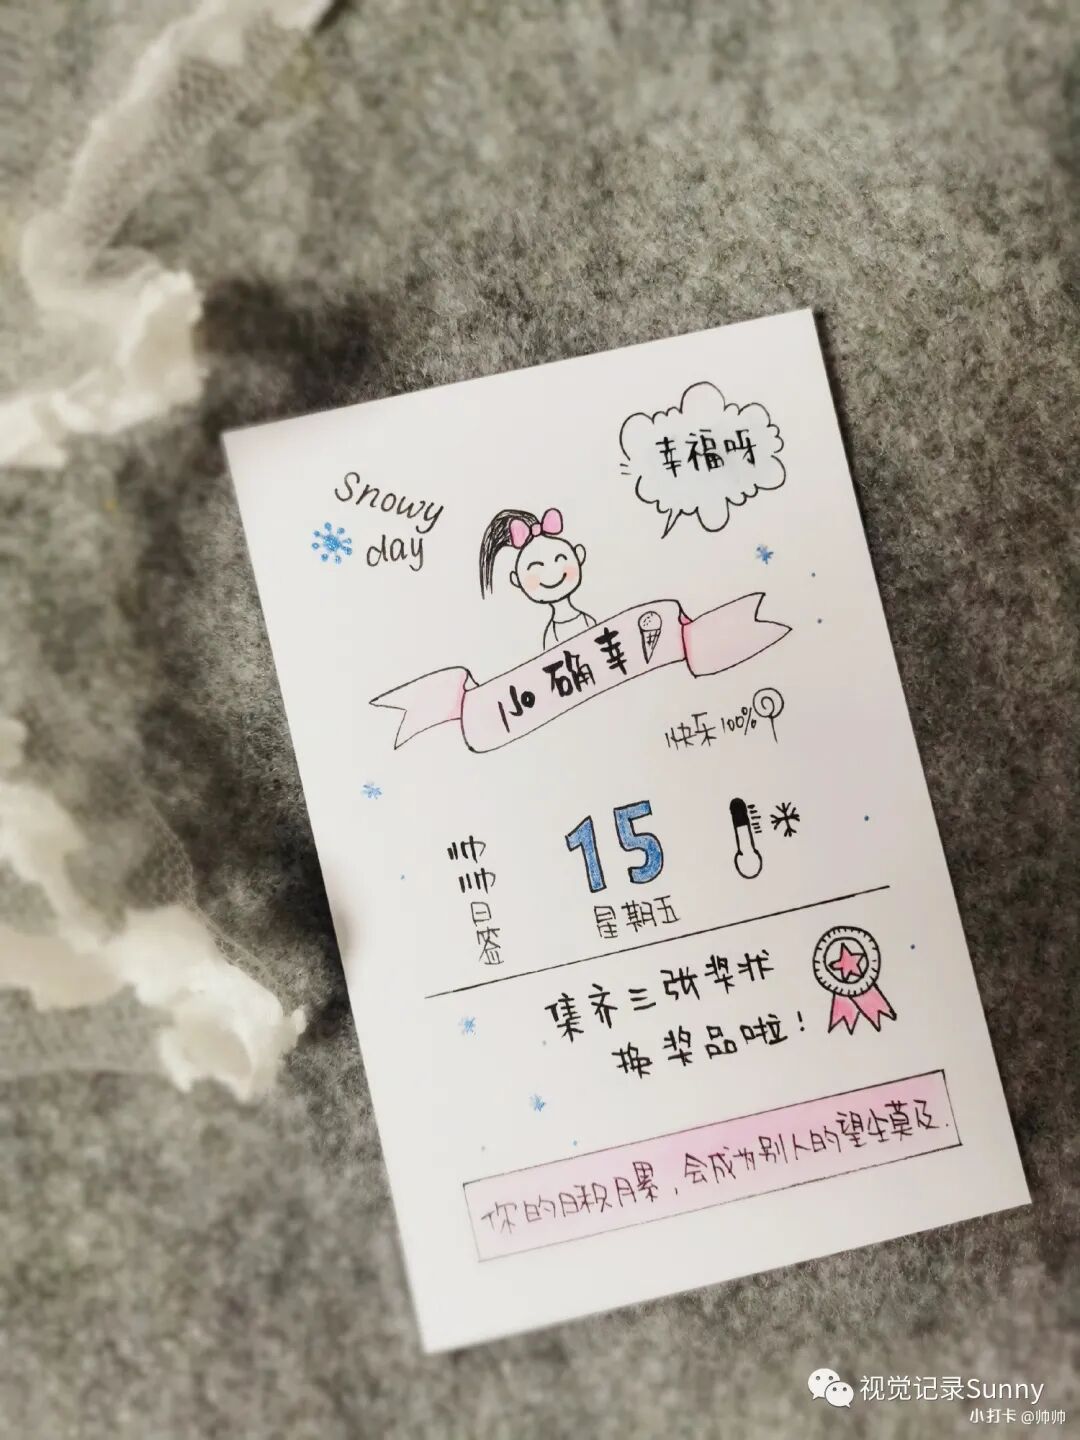 幸福呀
Snowy
day
小确幸
快乐100%
帅
帅
日
签
15
星期五
集齐三张奖状
换奖品啦！
你的日积月累，会成为别人的望尘莫及.
视觉记录Sunny
小打卡 @帅帅